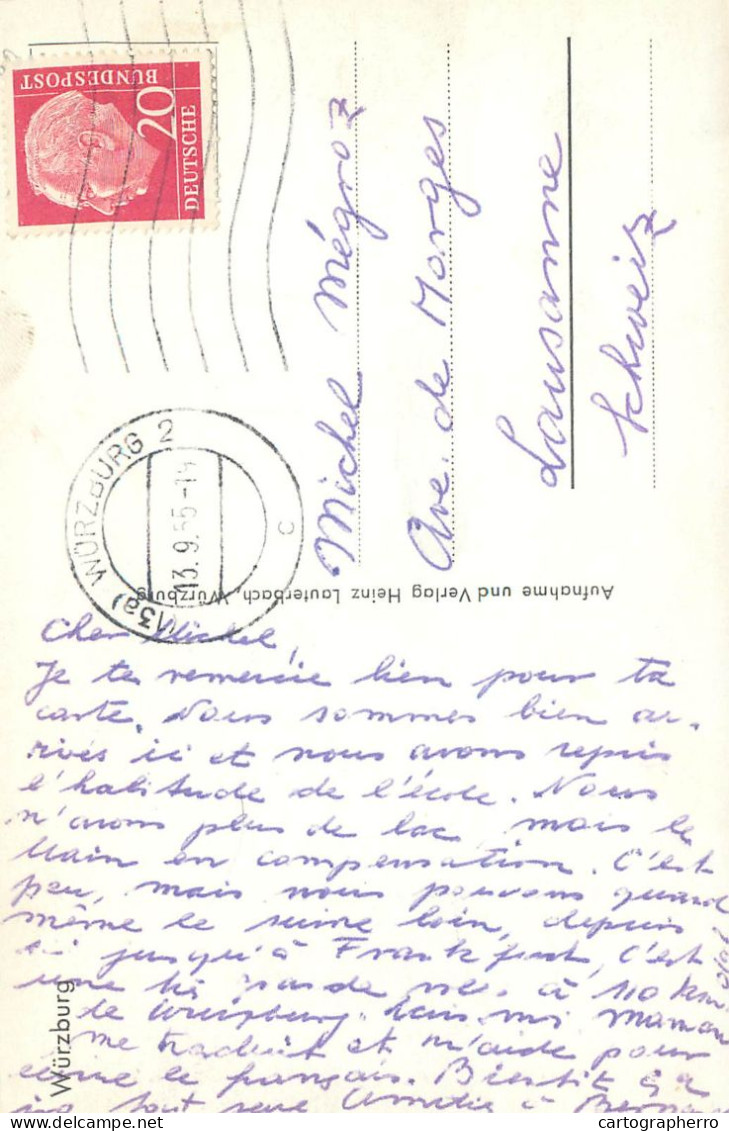 DEUTSCHE
BUNDESPOST
20
(13a) WÜRZBURG 2
13.9.55-14
c
Michel Mégroz
Ave. de Morges
Lausanne
Schweiz
Aufnahme und Verlag Heinz Lauterbach, Würzburg
Würzburg
Cher Michel,
Je te remercie bien pour ta
carte. Nous sommes bien ar-
rivés ici et nous avons repris
l'habitude de l'école. Nous
n'avons plus de lac, mais le
Main en compensation. C'est
peu, mais nous pouvons quand
même le suivre loin, depuis
ici jusqu'à Frankfurt, c'est
une très grande ville à 110 km
de Würzburg. maman
me traduit et m'aide pour
écrire le français. Bientôt ça
ira tout seul. Amitiés à
cartographerro